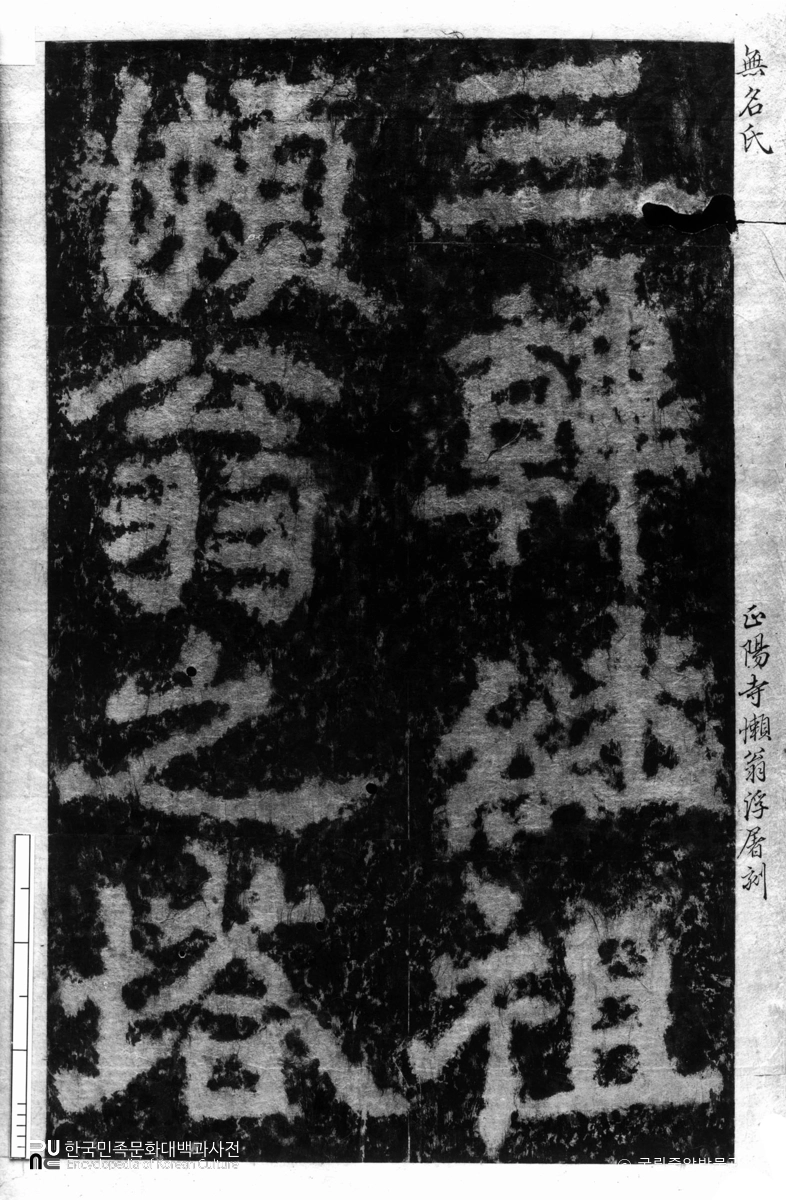 無名氏
正陽寺懶翁浮屠刻
三韓祖
懶翁之塔
한국민족문화대백과사전
Encyclopedia of Korean Culture
국립중앙박물관